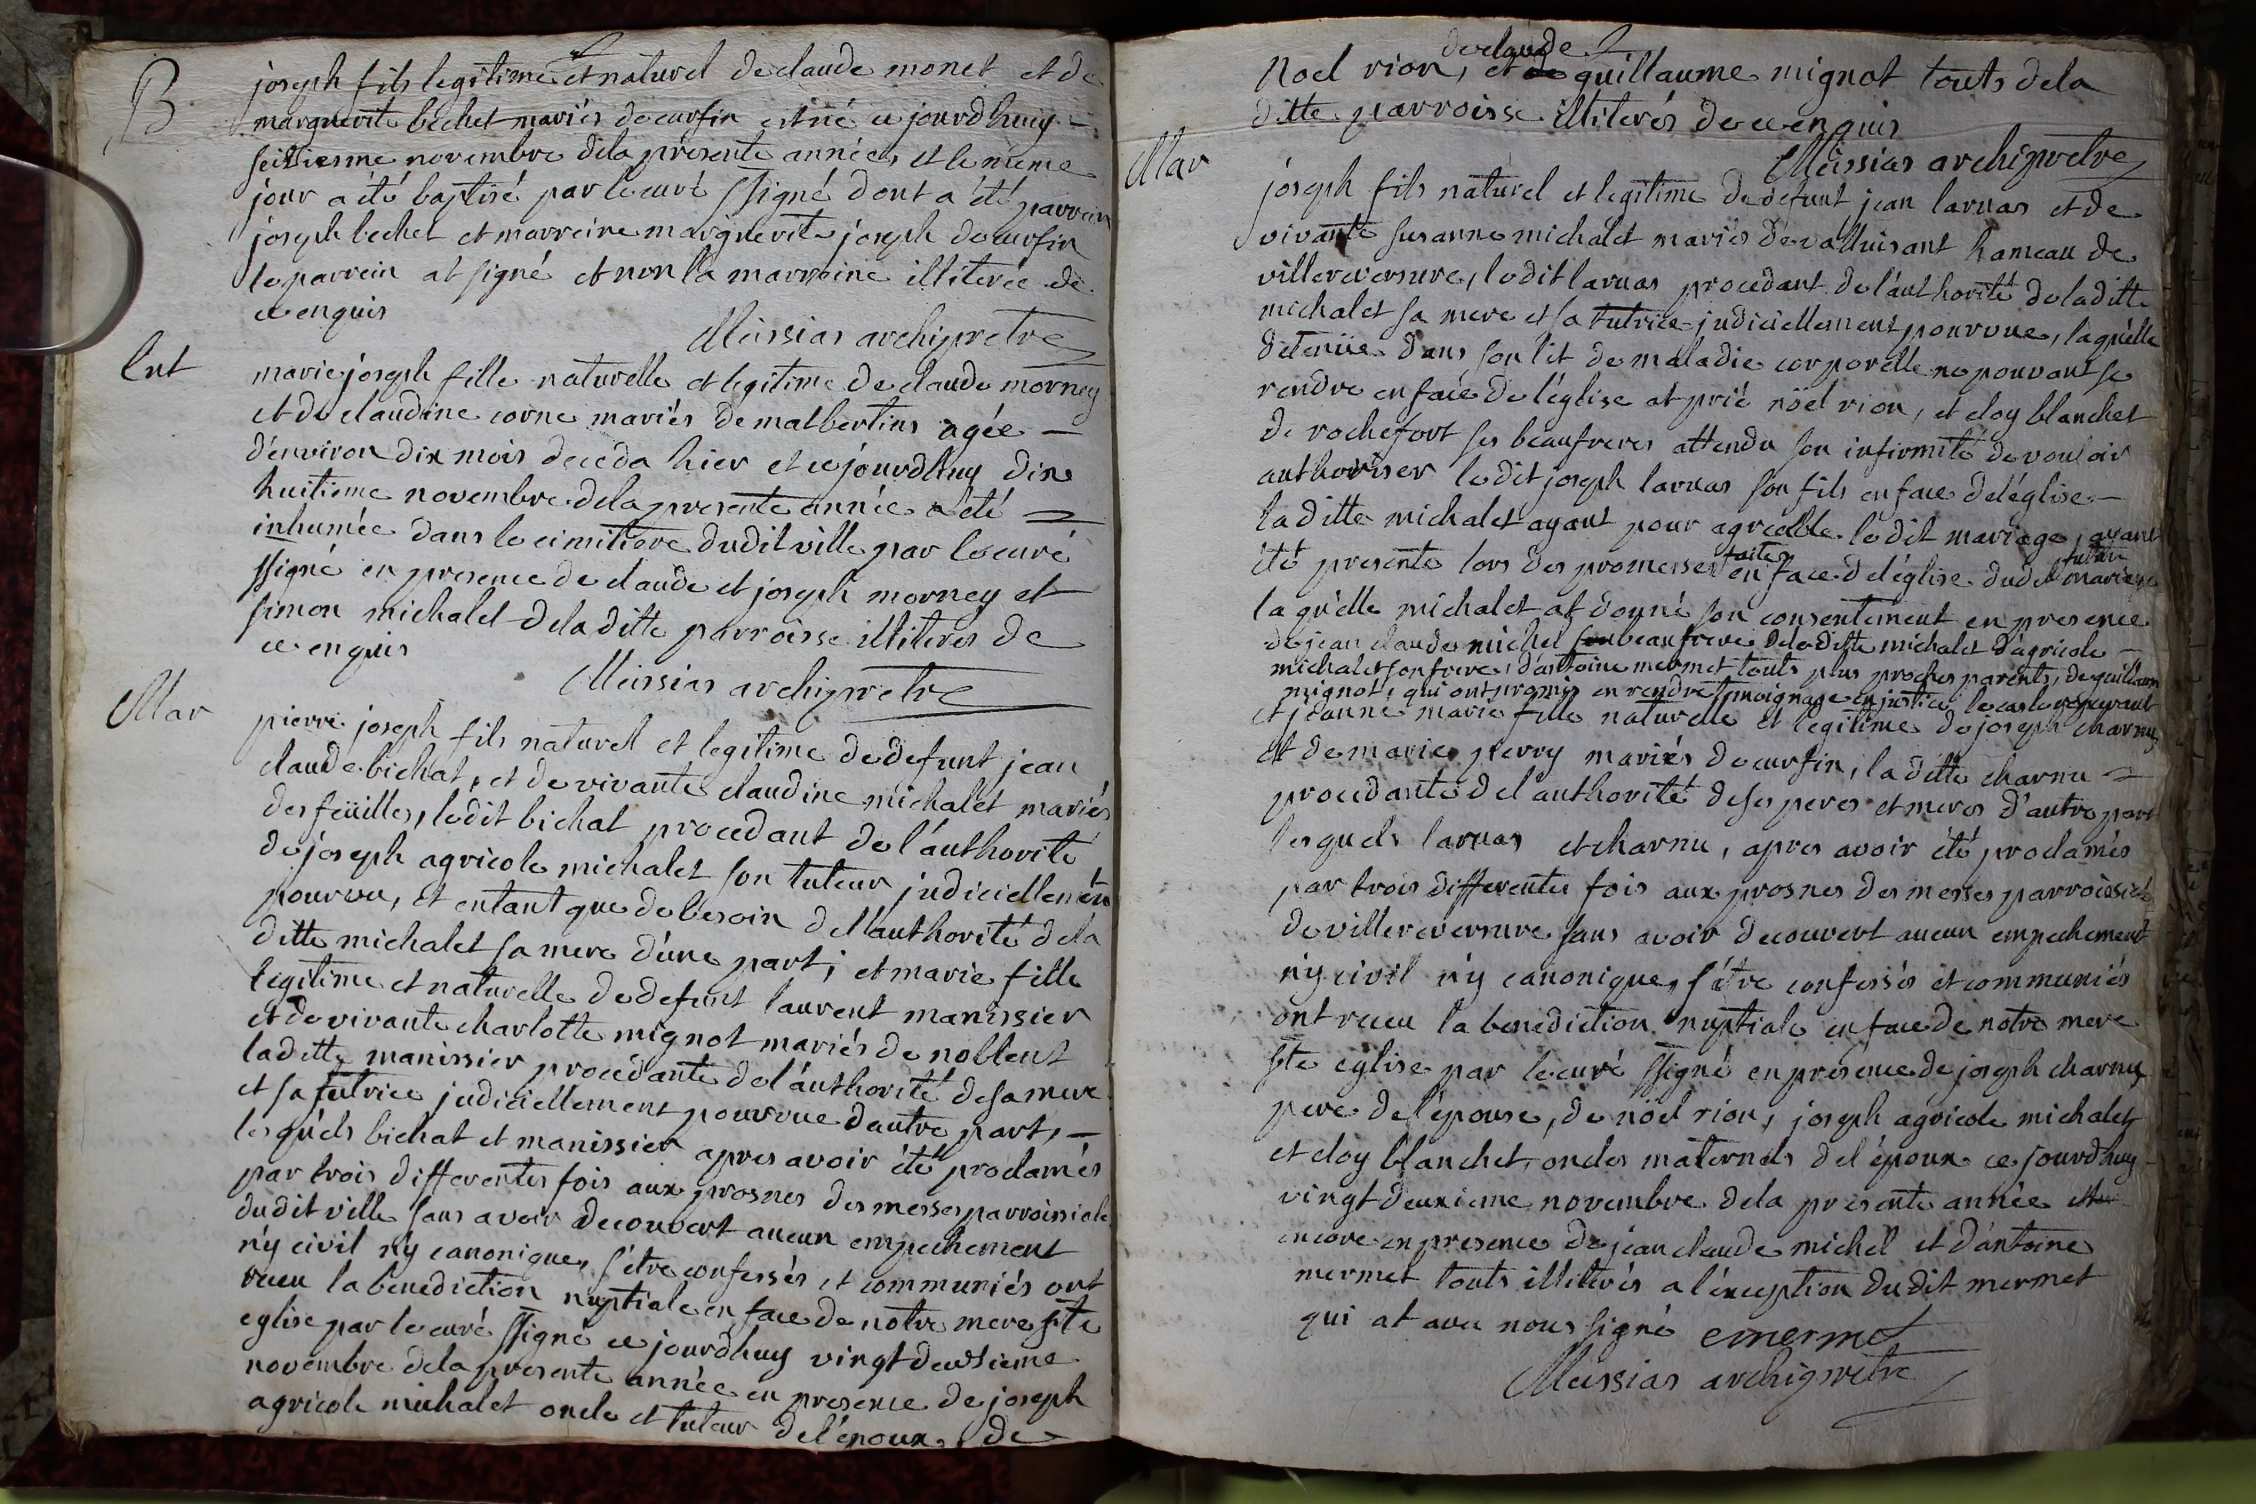 B
joseph fils legitime et naturel de claude monet et de
marguerite bechet mariés de cursin est né ce jourdhuy
seissiesme novembre dela présente année, et le meme
jour a été baptisé par le curé ssigné dont a été parrein
joseph bechet et marreine marguerite joseph de cursin
le parrein at signé et non la marreine illiterée de
ce enquis
Messias archipretre
Ent
marie joseph fille naturelle et legitime de claude morney
et de claudine corne mariés de matbertins agée
d'environ dix mois deceda hier et ce jourdhuy dix
huitieme novembre dela presente année a été
inhumée dans le cimitiere dudit ville par le curé
ssigné en presence de claude et joseph morney et
simon michalet dela ditte parroisse illiteres de
ce enquis
Messias archipretre
Mar
pierre joseph fils naturel et legitime de defunt jean
claude bichat, et de vivante claudine michalet mariés
des feüilles, ledit bichat procedant de l'authorité
de joseph agricole michalet son tuteur judiciellemen
pourvu, et entant que de besoin de l'authorité dela
ditte michalet sa mere d'une part; et marie fille
legitime et naturelle de defunt laurent manissier
et de vivante charlotte mignot mariés de noblent
laditte manissier procedante de l'authorité de sa mere
et sa tutrice judiciellement pourvue dautre part,
lesquels bichat et manissier apres avoir été proclamés
par trois differentes fois aux prosnes des messes parroissiales
dudit ville sans avoir decouvert aucun empechement
n'y civil n'y canonique, s'étre confessés et communiés ont
recu la benediction nuptiale en face de notre mere ste
eglise par le curé ssigné ce jourdhuy vingt deusieme
novembre dela presente année en presence de joseph
agricole michalet oncle et tuteur de l'époux, de
Noel rion, et de claude de guillaume mignot touts dela
ditte parroisse illiterés de ce enquis
Messias archipretre
Mar
joseph fils naturel et legitime de defunt jean laruas et de
vivante susanne michalet mariés de valluisant hameau de
villereversure, ledit laruas procedant de l'authorité de laditte
michalet sa mere et sa tutrice judiciellement pourvue, laquelle
detenüe dans son lit de maladie corporelle ne pouvant se
rendre en face de l'église at prié nöel rion, et eloy blanchet
de rochefort ses beaufreres attendu son infirmité de vouloir
authoriser ledit joseph laruas son fils en face del'église
laditte michalet ayant pour agreable ledit mariage, ayant
été presente lors des promesses faites en face del'église dudit futur mariage
laquelle michalet at donné son consentement en presence
de jean claude michel son beaufrere dela ditte michalet d'agricole
michalet son frere, d'antoine mermet touts plus proches parents, de guillaume
mignot, qui ont promis en rendre temoignage en justice le cas le requerant
et jeanne marie fille naturelle et legitime de joseph charnu
et de marie pierry mariés de cursin, la ditte charnu
procedante del'authorité de ses peres et meres d'autre part
lesquels laruas et charnu, apres avoir été proclamés
par trois differentes fois aux prosnes des messes parroissiales
de villereversure sans avoir decouvert aucun empechement
n'y civil n'y canonique, s'étre confessés et communiés
ont recu la benediction nuptiale en face de notre mere
ste eglise par le curé ssigné en présence de joseph charnu
pere de l'épouse, de nöel rion, joseph agricole michalet
et eloy blanchet, oncles maternels de l'époux ce jourdhuy
vingt deuxieme novembre dela presente année
encore en presence de jean claude michel et d'antoine
mermet touts illiterés a l'exception dudit mermet
qui at avec nous signé emermet
Messias archipretre